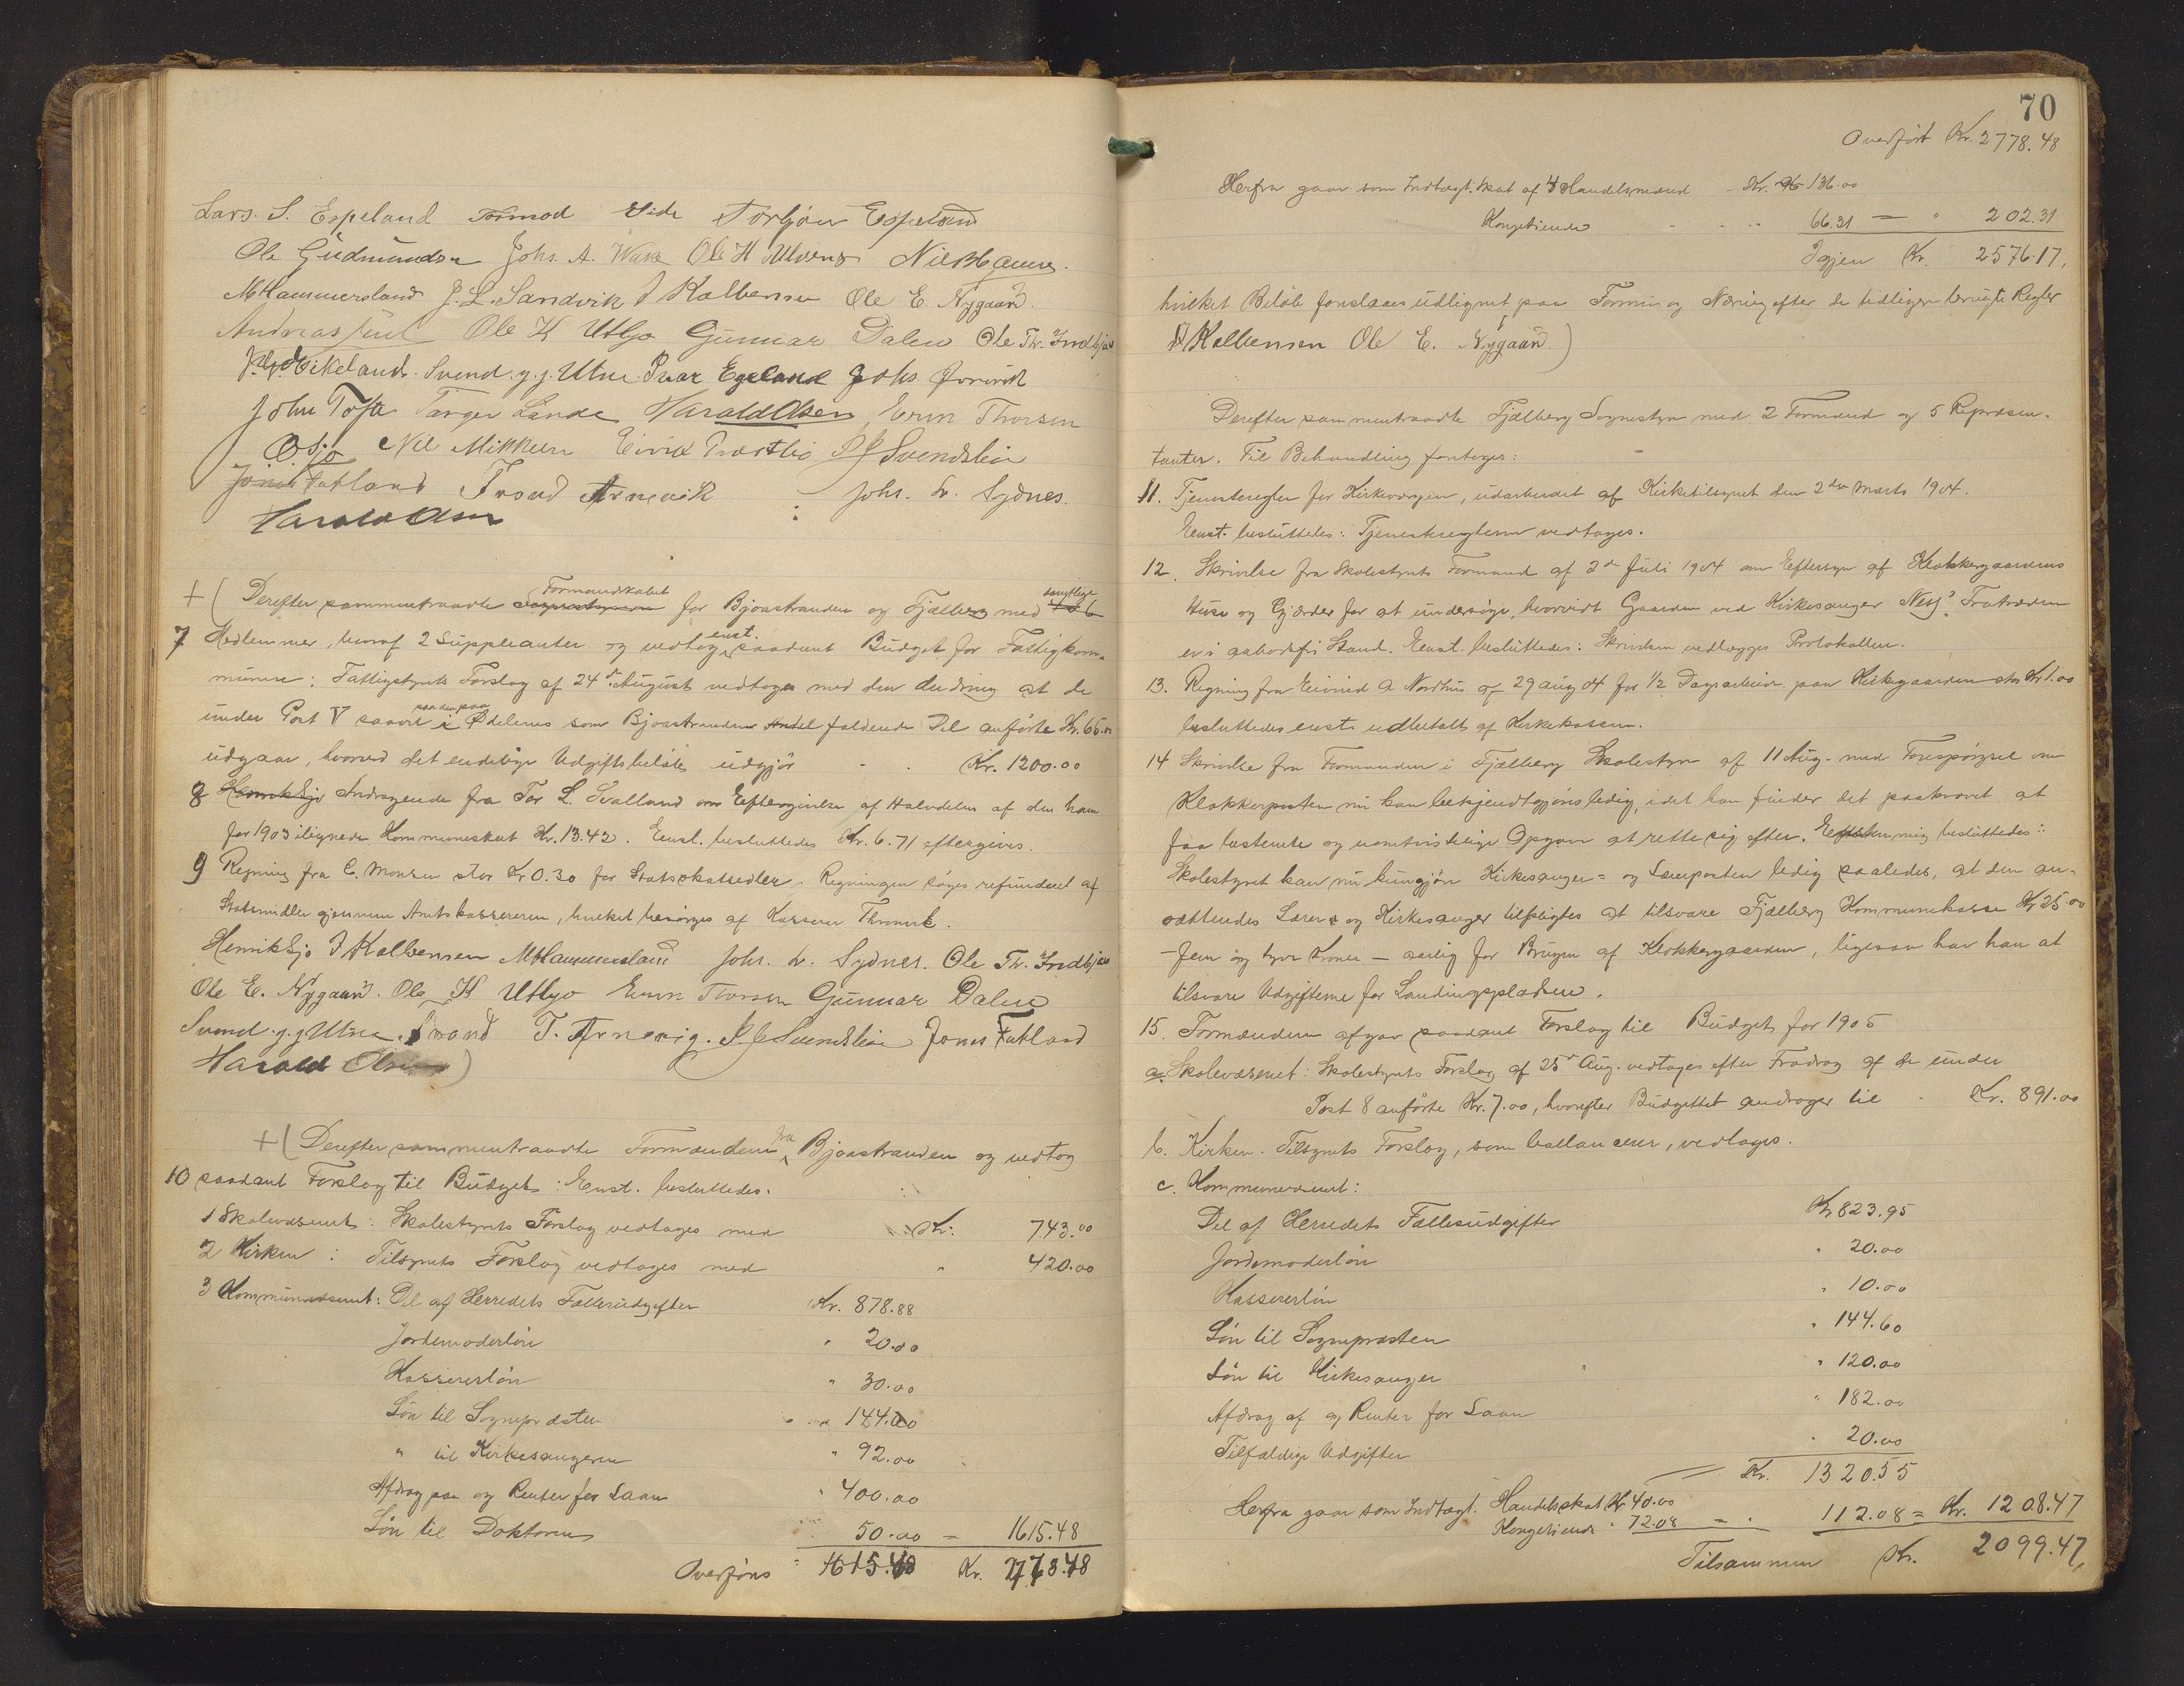 Lars. S. Espeland Tormod Eide Torbjørn Espeland
Ole Gudmundsen Johs. A. Ole H Ulvenes
M Hammersland J. L. Sandvik J Kalvensen Ole E. Nygaard.
Andreas Juul Ole K Utbjo Gunnar Dalen Ole Th. Indbjoe
Vikeland. Svend. J. J. Utne. Ivar Egeland Johs
John Tofte Torger Lande Harald Olsen Enn Thorsen
O Sjo Nil Mikkelsen Eivin S J Svendslien
Jonas Fatland Trond Arnevik Johs. L. Sydnes.
Harald Olsen
+( Derefter sammentraadte Formandskabet for Bjoastranden og Fjelberg med samtlige
7 Medlemmer, hvoraf 2 Suppleanter og vedtog enst. saadant Budget for Fattigkom-
munen: Fattigstyrets Forslag af 24de August vedtoges med den Ændring at de
under Post V saavel i Ølelens som paa den paa Bjoastranden faldende Del anførte Kr. 65.00
udgaar, hvorved det endelige Udgiftsbeløb udgjør Kr. 1200.00
8 Andragende fra Tor L. Svalland om Eftergivelse af Halvdelen af den ham
for 1903 ilignede Kommuneskat Kr. 13.42. Enst. besluttedes Kr. 6.71 eftergives.
9 Regning fra C. Monsen stor Kr 0.30 for Statsskatsedler. Regningen søges refunderet af
Statsmidler gjennem Amtskassereren, hvilket besørges af Kasserer
Henrik Sjo J Kalvensen M Hammersland Johs. L. Sydnes. Ole Th. Indbjoe
Ole E. Nygaard. Ole K Utbjo Enn Thorsen Gunnar Dalen
Svend. J. J. Utne. Trond T. Arnevig. S J Svendslien Jonas Fatland
Harald Olsen)
+( Derefter sammentraadte Formændene fra Bjoastranden og vedtog
10 saadant Forslag til Budget: Enst. besluttedes.
1 Skolevæsenet: Skolestyrets Forslag vedtages med Kr. 743.00
2 Kirken: Tilsynets Forslag vedtages med " 420.00
3 Kommunevæsenet: Del af Herredets Fællesudgifter Kr. 878.88
Jordemoderløn " 20.00
Kassererløn " 30.00
Løn til Sognepræsten " 144.60
" til Kirkesangeren " 92.00
Afdrag paa og Renter for Laan " 400.00
Løn til Doktoren 50.00 = 1615.48
Overføres = 1615.48 Kr. 2778.48
70
Overført Kr. 2778.48
Herfra gaar som Indtægt: Skat af 4 Handelsmænd - Kr. 136.00
Kongetiende 66.31 = " 202.31
Igjen Kr. 2576.17,
hvilket Beløb foreslaaes udlignet paa Formue og Næring efter de tidligere brugte Regler
J Kalvensen Ole E. Nygaard)
Derefter sammentraadte Fjelberg Sognestyre med 2 Formænd og 5 Repræsen-
tanter. Til Behandling foretoges:
11. Tjenesteregler for Kirkeværgen, udarbeidet af Kirketilsynet den 2den Marts 1904.
Enst. besluttedes: Tjenestereglerne vedtages.
12. Skrivelse fra Skolestyrets Formand af 2de Juli 1904 om Eftersyn af Klokkergaardens
Huse og Gjærder for at undersøge, hvorvidt Gaarden ved Kirkesanger Ness' Fratræden
er i aabodsfri Stand. Enst. besluttedes: Skrivelsen vedlægges Protokollen.
13. Regning fra Eivind A Nordhus af 29 aug 04 for 1/2 Dagsarbeide paa Kirkegaarden stor Kr 1.00
besluttedes enst. udbetalt af Kirkekassen.
14 Skrivelse fra Formanden i Fjelberg Skolestyre af 11 Aug. med Forespørgsel om
Klokkerposten nu kan bekjendtgjøres ledig, idet han finder det paakrævet at
faa bestemte og uomtvistelige Opgaver at rette sig efter. Enstemmig besluttedes:
Skolestyret kan nu kungjøre Kirkesanger= og Lærerposten ledig saaledes, at den an-
sættendes Lærer og Kirkesanger tilpligtes at tilsvare Fjelberg Kommunekasse Kr 25.00
- fem og tyve Kroner - aarlig for Brugen af Klokkergaarden, ligesaa har han at
tilsvare Udgifterne for Landingspladsen.
15. Formændene afgav saadant Forslag til Budget for 1905
a. Skolevæsenet: Skolestyrets Forslag af 25de Aug. vedtages efter Fradrag af de under
Post 8 anførte Kr. 7.00, hvorefter Budgettet andrager til - Kr. 891.00
b. Kirken. Tilsynets Forslag, som ballancerer, vedtages.
c. Kommunevæsenet:
Del af Herredets Fællesudgifter Kr 823.95
Jordemoderløn " 20.00
Kassererløn " 10.00
Løn til Sognepræsten " 144.60
Løn til Kirkesanger " 120.00
Afdrag af og Renter for Laan " 182.00
Tilfældige Udgifter " 20.00
Kr. 1320.55
Herfra gaar som Indtægt. Handelsskat Kr 40.00
Kongetiende " 72.08 = " 112.08 = Kr. 1208.47
Tilsammen Kr. 2099.47,